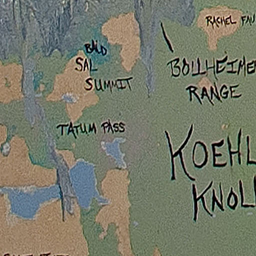 RACHEL
BALD
SAL
SUMMIT
BOLLHEIME
RANGE
TATUM PASS
KOEHL
KNOL